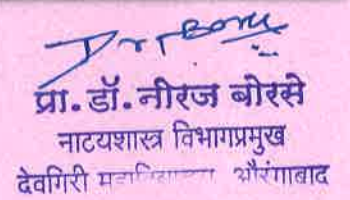 प्रा. डॉ. नीरज बोरसे
नाटयशास्त्र विभागप्रमुख
देवगिरी औरंगाबाद